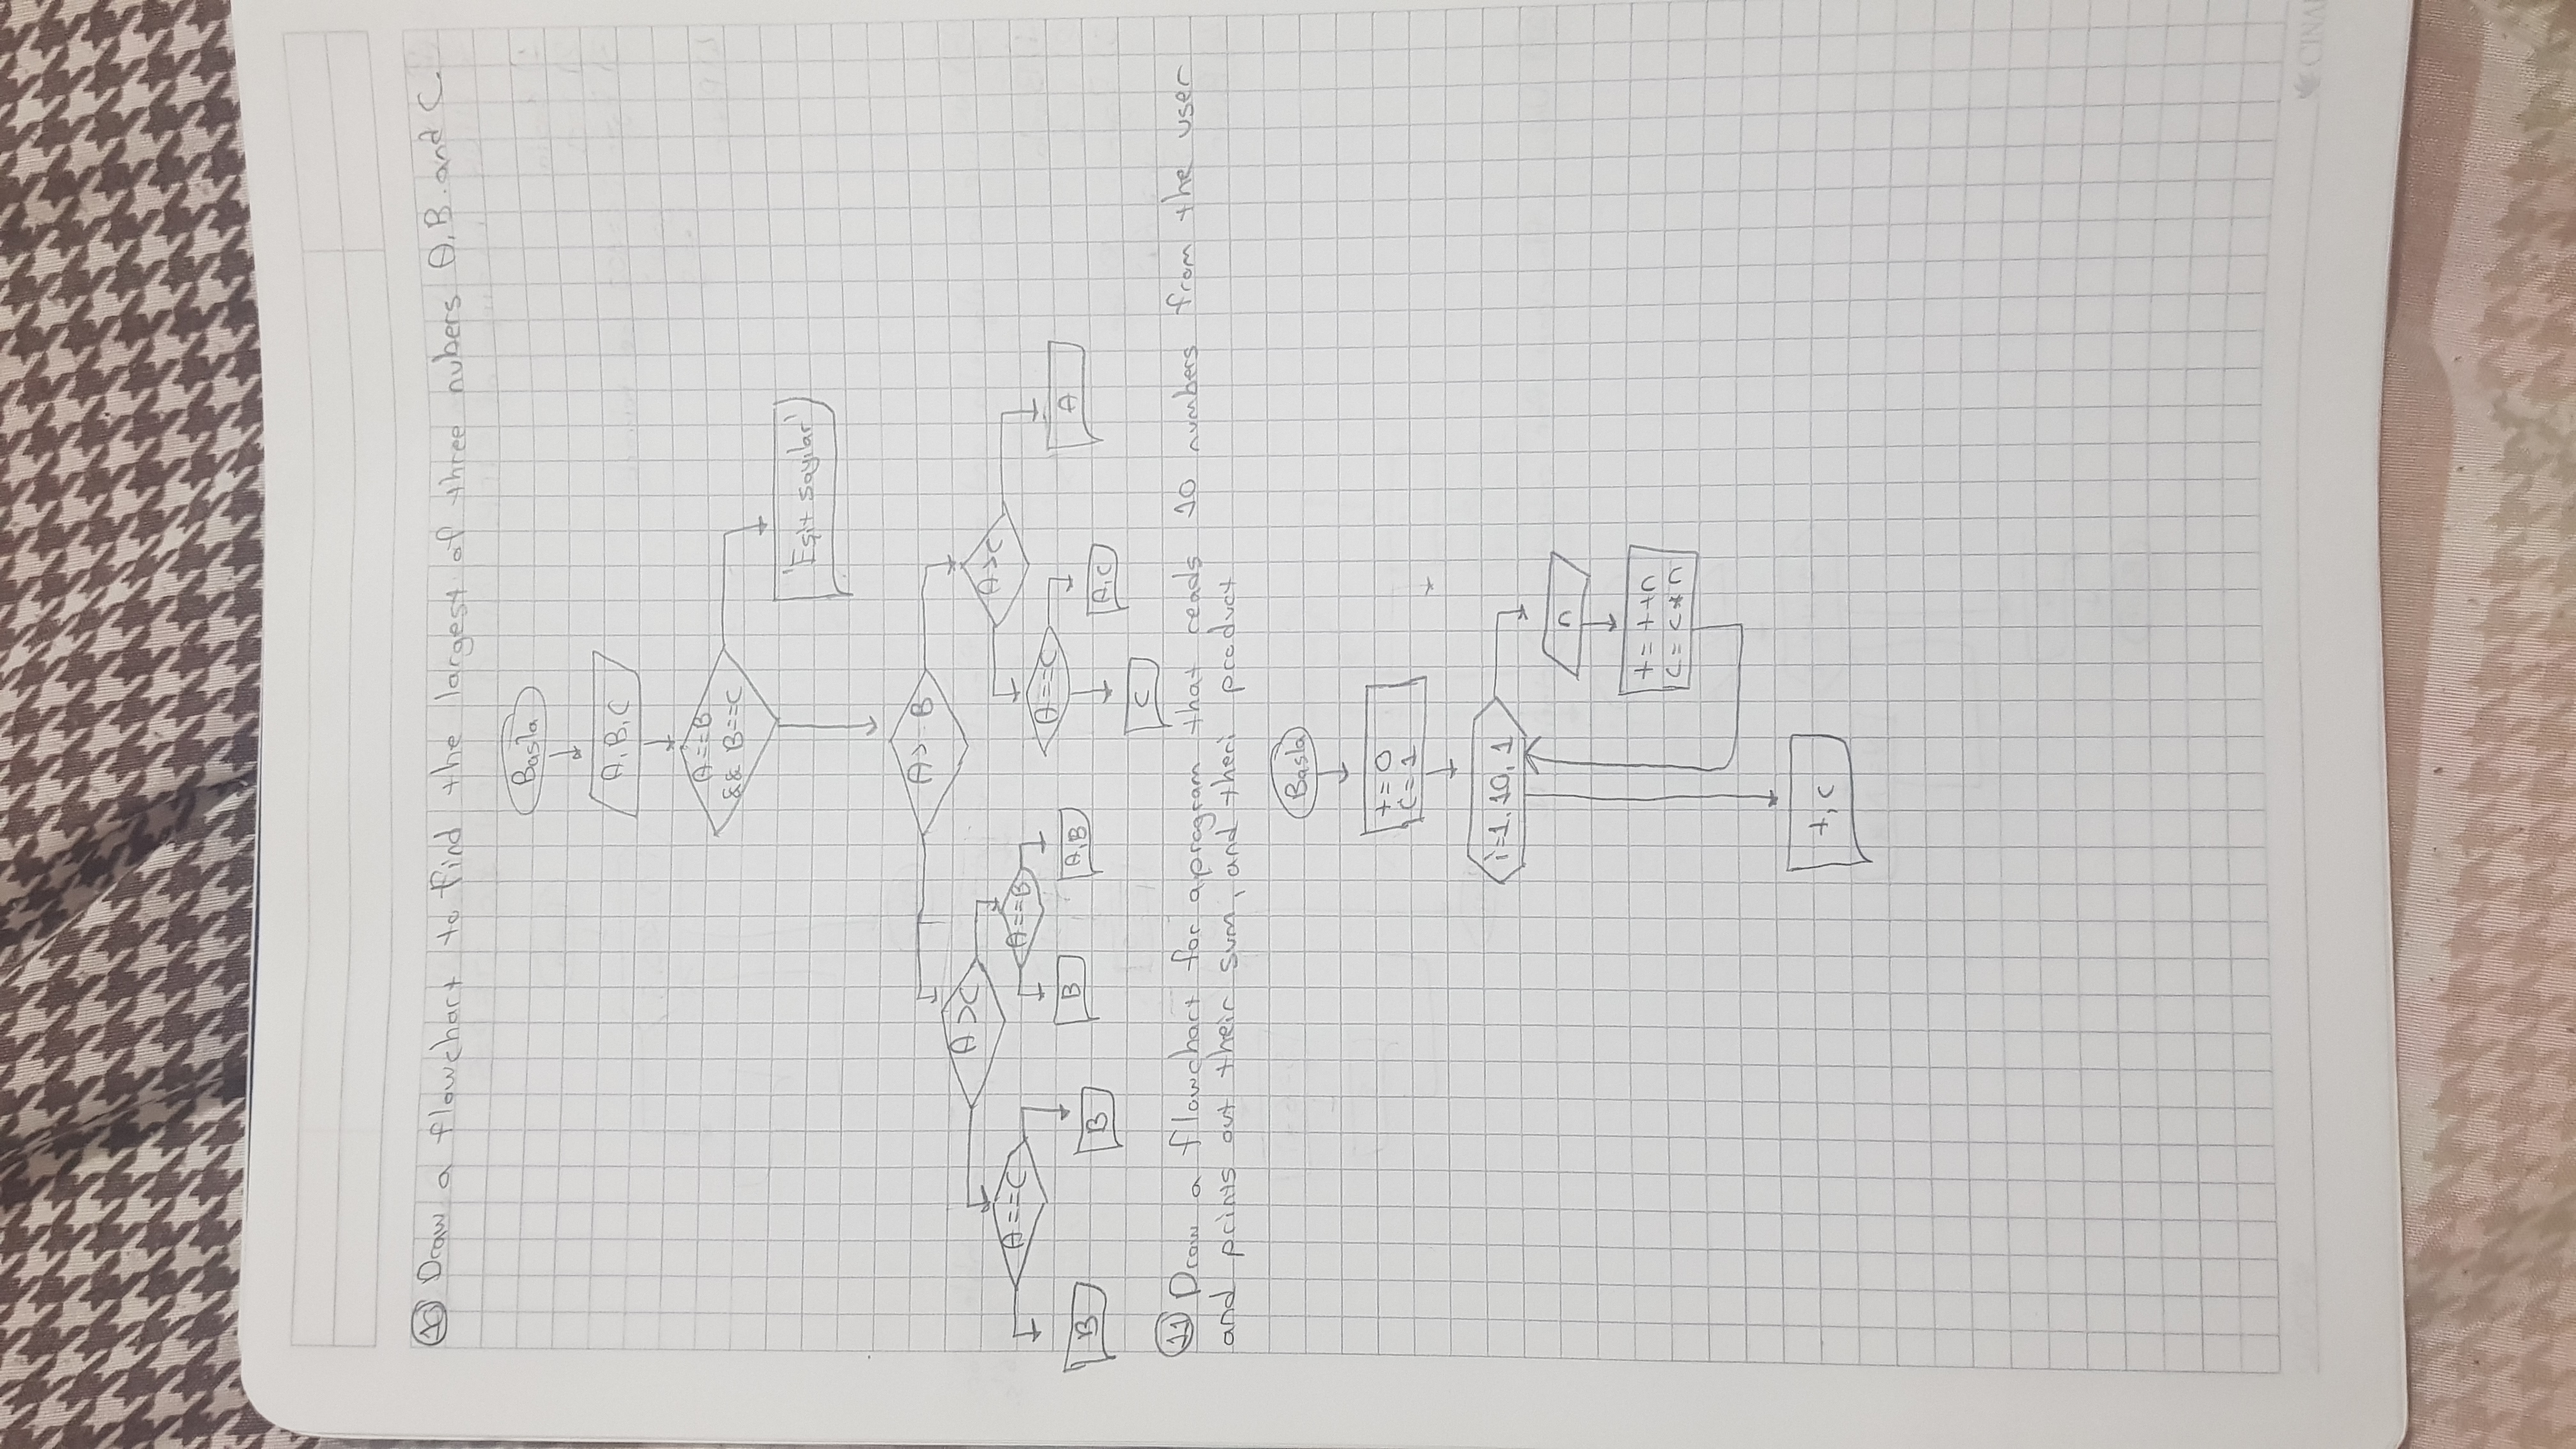 10 Draw a flowchart to find the largest of three nubers A, B and C
Basla
A, B, C
A==B
&& B==C
'Eşit sayılar'
A > B
A > C
A > C
A==C
A==B
A==C
B
B
B
A,B
C
A,C
A
11 Draw a flowchart for a program that reads 10 numbers from the user
and prints out their sum, and theri product
Basla
t=0
c=1
i=1, 10, 1
n
t=t+n
c=c*n
t, c